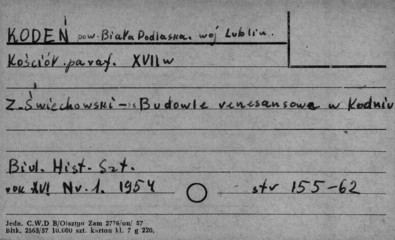 KODEŃ pow. Biała Podlaska. woj Lublin.
Kościół paraf. XVII w
Z. Świechowski – Budowle renesansowe w Kodniu
Biul. Hist. Szt.
rok XVI Nr. 1. 1954 str 155-62
Jedn. C.W.D B/Olsztyn Zam 2776/on/ 57
Bltk. 2563/57 10.000 szt. karton kl. 7 g 220.